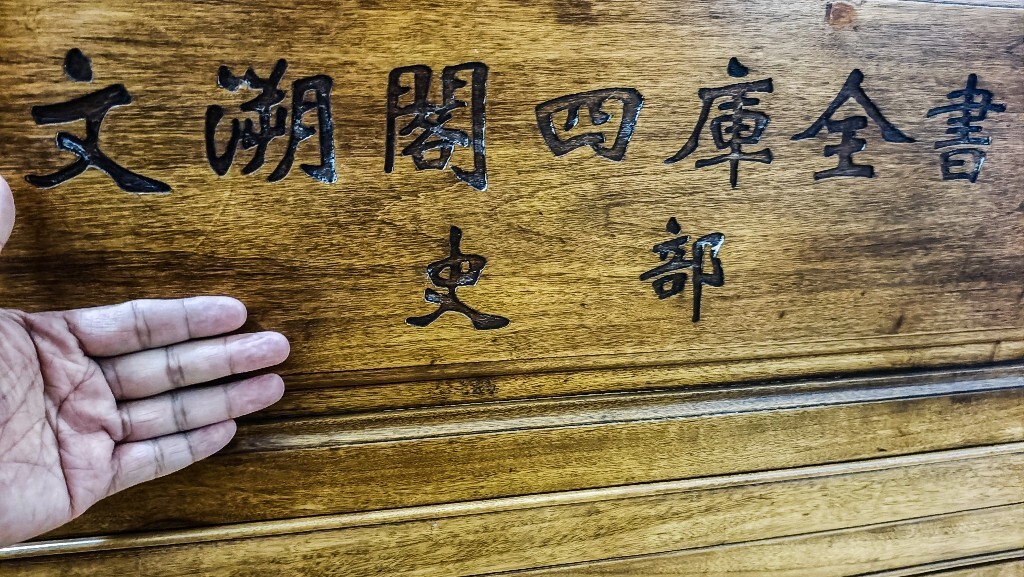 文溯閣四庫全書
史部